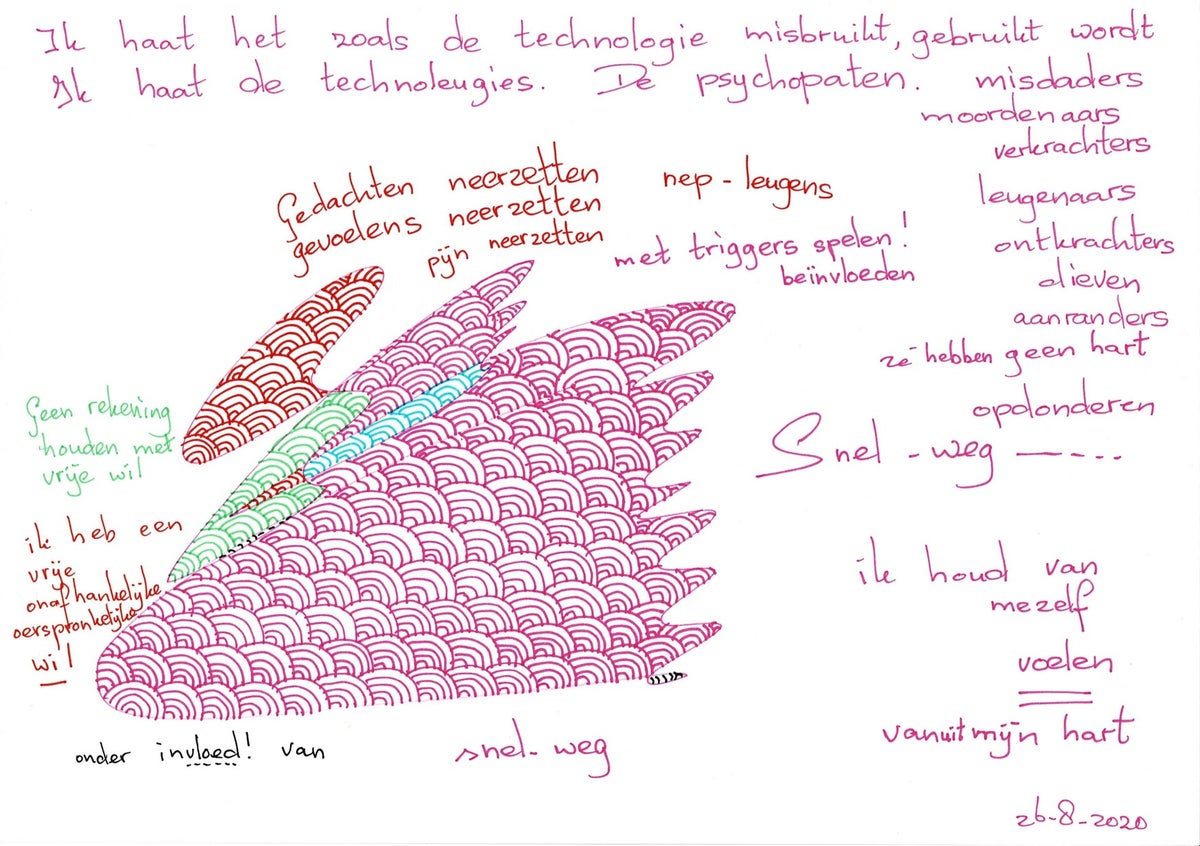 Ik haat het zoals de technologie misbruikt, gebruikt wordt
Ik haat de technoleugies. De psychopaten. misdaders
moordenaars
verkrachters
leugenaars
ontkrachters
dieven
aanranders
ze hebben geen hart
opdonderen
Gedachten neerzetten
gevoelens neerzetten
pijn neerzetten
nep - leugens
met triggers spelen!
beïnvloeden
Snel - weg
Geen rekening
houden met
vrije wil
ik heb een
vrije
onafhankelijke
oerspronkelijke
wil
ik houd van
mezelf
voelen
vanuit mijn hart
onder invloed! van
snel-weg
26-8-2020